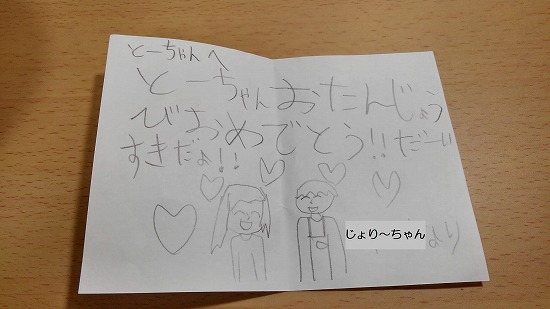 とーちゃんへ
とーちゃんおたんじょう
びおめでとう!!だーい
すきだよ!!
じょり～ちゃん より